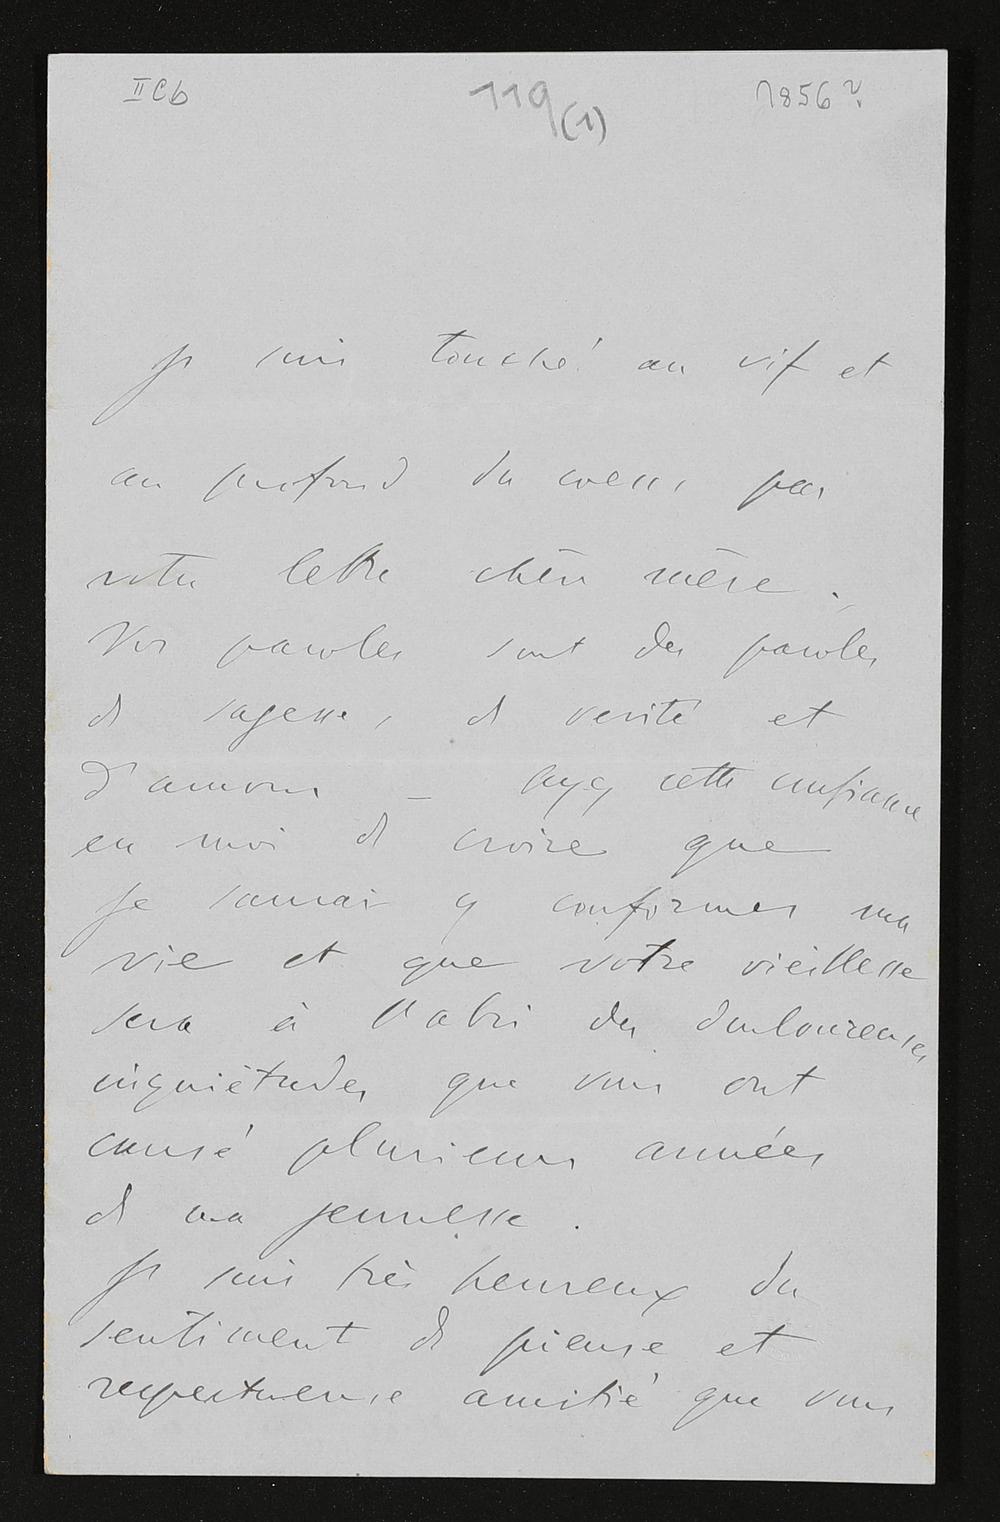 II C b 119 (1) 1856 ?
Je suis touché au vif et
au profond du coeur par
votre lettre chère mère.
Vos paroles sont des paroles
de sagesse, de verité et
d'amour – Ayez cette confiance
en moi de croire que
je saurai y conformer ma
vie et que votre vieillesse
sera à l'abri des douloureuses
inquiétudes que vous ont
causé plusieurs années
de ma jeunesse.
Je suis très heureux du
sentiment de pieuse et
respectueuse amitié que vous